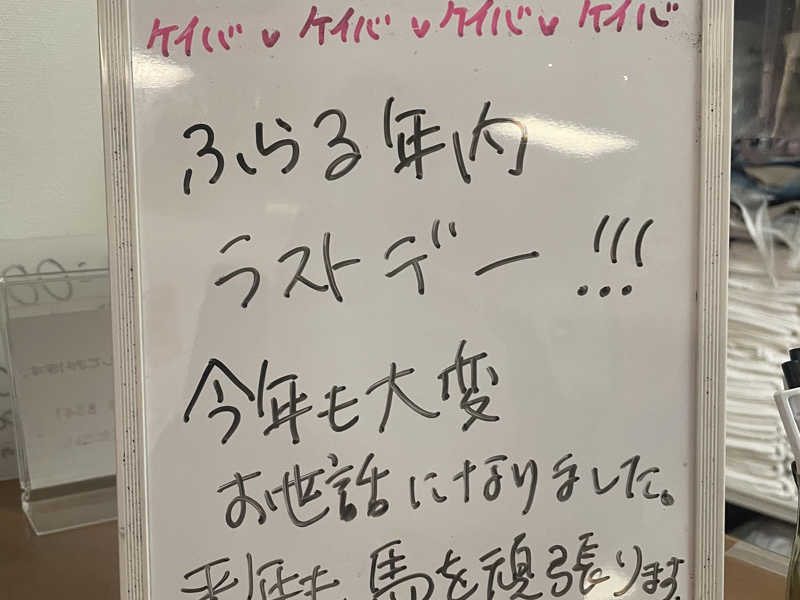 ケイバ♥ケイバ♥ケイバ♥ケイバ
ふらる年内
ラストデー!!!
今年も大変
お世話になりました。
来年も馬を頑張ります